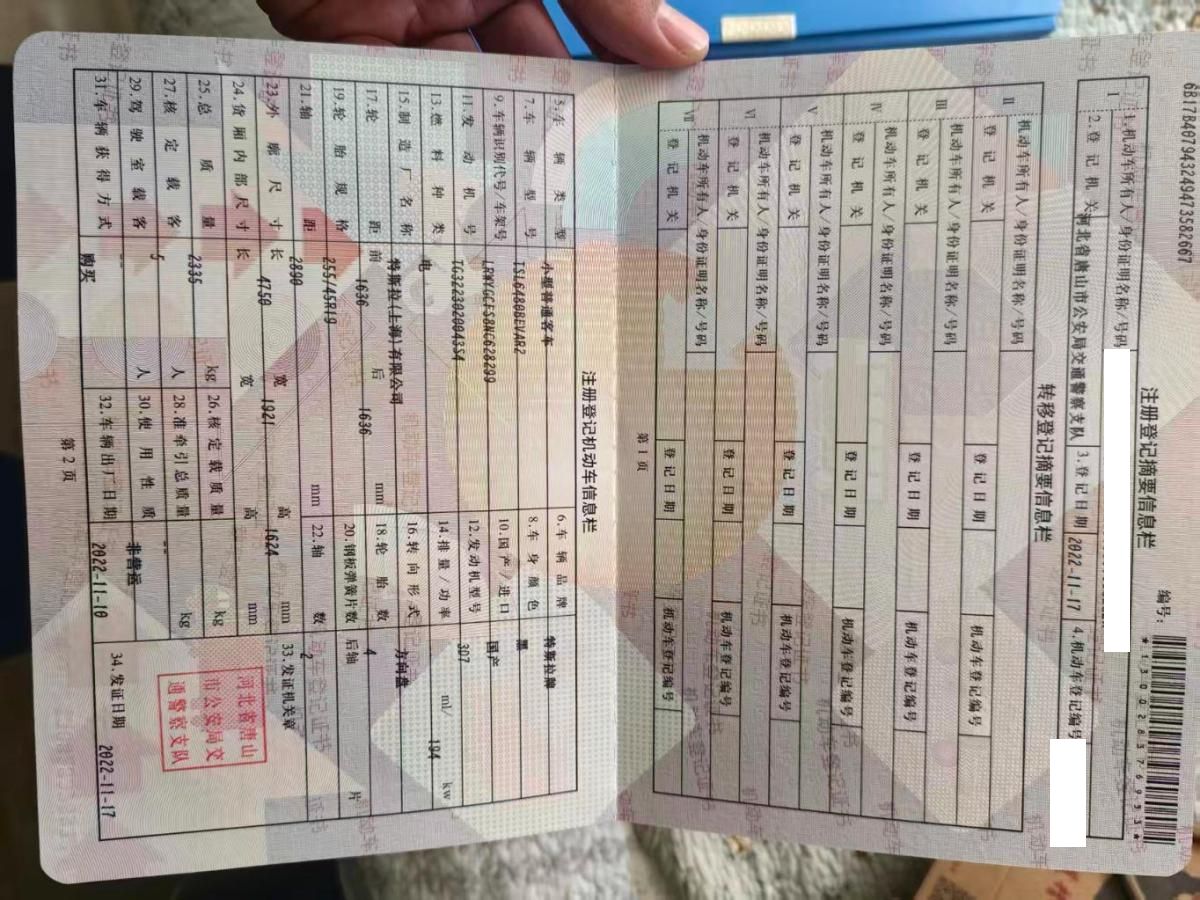 6B17B407943249473582667
注册登记摘要信息栏
编号:
I
1.机动车所有人/身份证明名称/号码
2.登记机关 河北省唐山市公安局交通警察支队 3.登记日期 2022-11-17 4.机动车登记编号
转移登记摘要信息栏
II 机动车所有人/身份证明名称/号码
登记机关 登记日期 机动车登记编号
III 机动车所有人/身份证明名称/号码
登记机关 登记日期 机动车登记编号
IV 机动车所有人/身份证明名称/号码
登记机关 登记日期 机动车登记编号
V 机动车所有人/身份证明名称/号码
登记机关 登记日期 机动车登记编号
VI 机动车所有人/身份证明名称/号码
登记机关 登记日期 机动车登记编号
VII 机动车所有人/身份证明名称/号码
登记机关 登记日期 机动车登记编号
第 1 页
注册登记机动车信息栏
5.车辆类型 小型普通客车 6.车辆品牌 特斯拉牌
7.车辆型号 TSL6480BEVAR2 8.车身颜色 黑
9.车辆识别代号/车架号 LRWYGCFS8NC628299 10.国产/进口 国产
11.发动机号 TG3223020043S4 12.发动机型号 3D7
13.燃料种类 电 14.排量/功率 ml/ 194 kw
15.制造厂名称 特斯拉(上海)有限公司 16.转向形式 方向盘
17.轮距 前 1636 后 1636 mm 18.轮胎数 4
19.轮胎规格 255/45R19 20.钢板弹簧片数 后轴 片
21.轴距 2890 mm 22.轴数 2
23.外廓尺寸 长 4750 宽 1921 高 1624 mm
33.发证机关章
24.货厢内部尺寸 长 宽 高 mm
25.总质量 2335 kg 26.核定载质量 kg
27.核定载客 5 人 28.准牵引总质量 -- kg
29.驾驶室载客 -- 人 30.使用性质 非营运
31.车辆获得方式 购买 32.车辆出厂日期 2022-11-10
河北省唐山
市公安局交
通警察支队
34.发证日期 2022-11-17
第 2 页